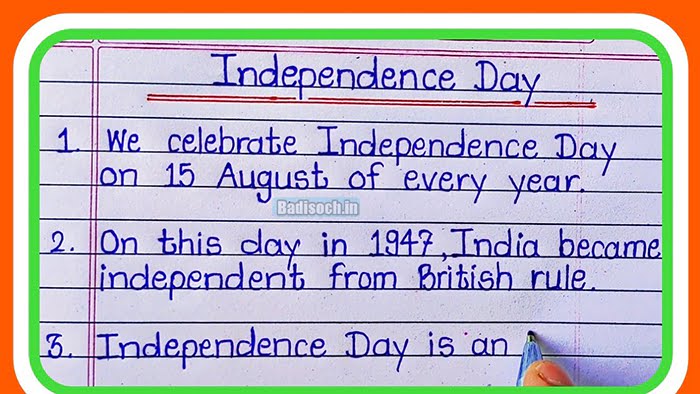 Independence Day
1. We celebrate Independence Day
on 15 August of every year.
Badisoch.in
2. On this day in 1947, India became
independent from British rule.
3. Independence Day is an